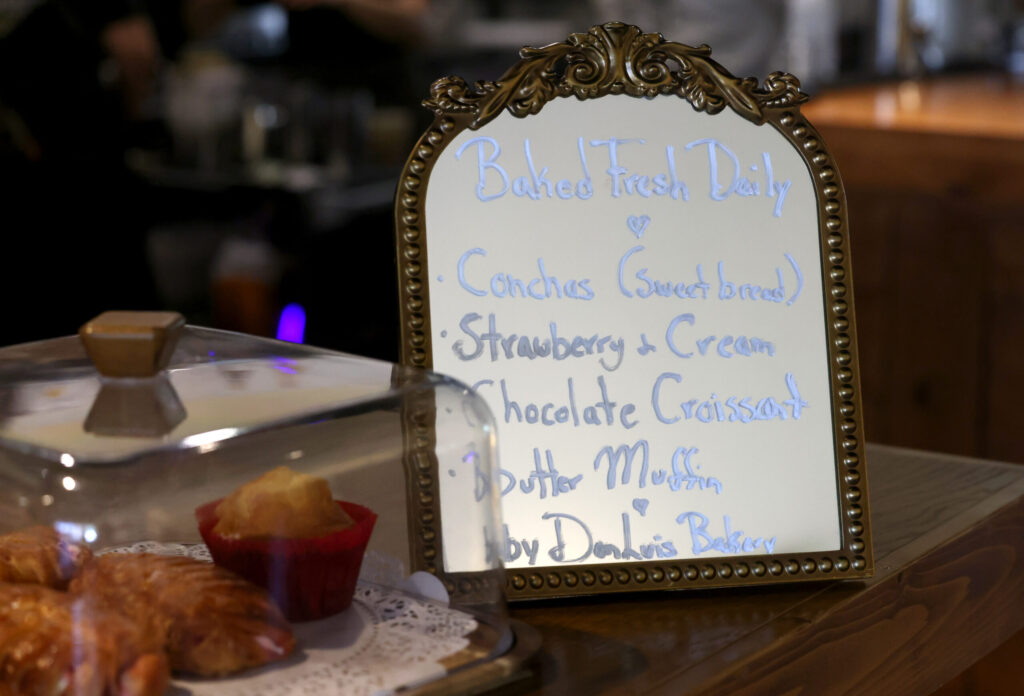 Baked Fresh Daily
· Conchas (sweet bread)
· Strawberry & Cream
· Chocolate Croissant
· butter Muffin
by DonLuis Bakery